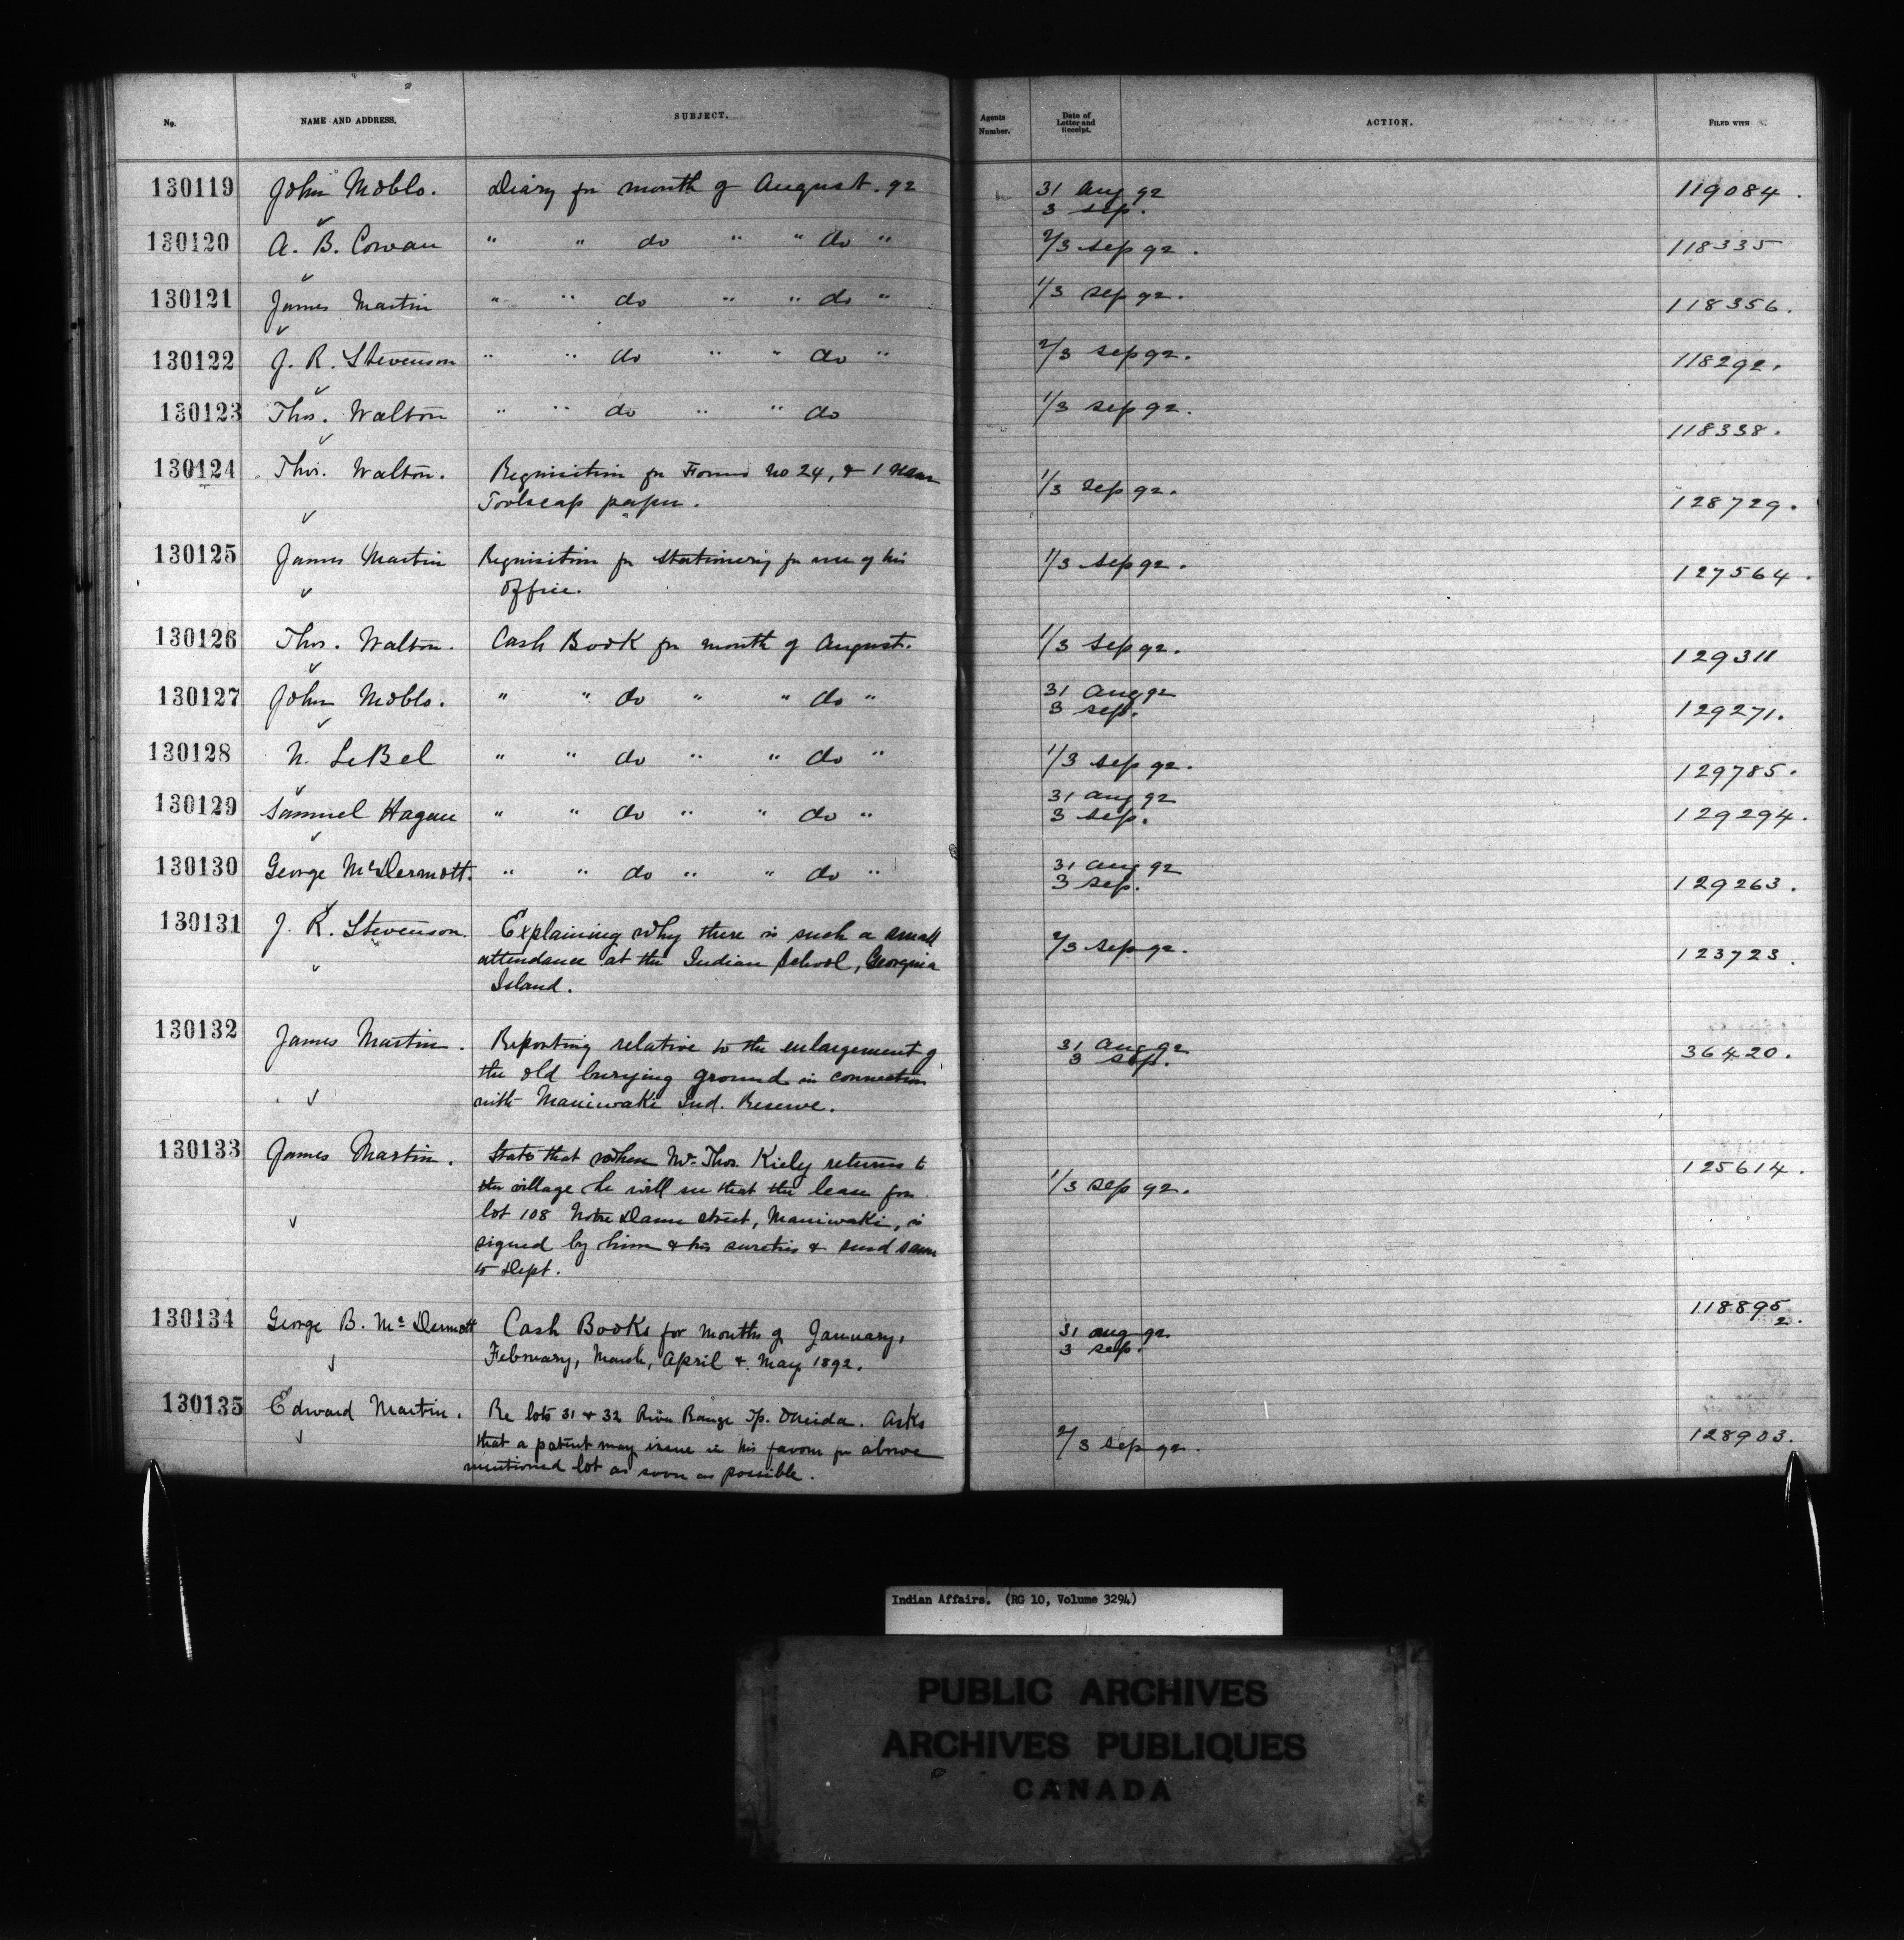 No. NAME AND ADDRESS. SUBJECT. Agents Number. Date of Letter and Receipt. ACTION. FILED WITH
130119 John Moblo. Diary for month of August. 92 31 Aug 92 119084.
3 Sep.
130120 A. B. Cowan " " do " " do " 2/3 Sep 92. 118335
130121 James Martin " " do " " do " 1/3 Sep 92. 118356.
130122 J. R. Stevenson " " do " " do " 2/3 Sep 92. 118292.
130123 Thos. Walton " " do " " do 1/3 Sep 92. 118338.
130124 Thos. Walton. Requisition for Forms No 24, & 1 ream 1/3 Sep 92. 128729.
Foolscap paper.
130125 James Martin Requisition for stationery for use of his 1/3 Sep 92. 127564.
Office.
130126 Thos. Walton. Cash Book for month of August. 1/3 Sep 92. 129311
130127 John Moblo. " " do " " do " 31 Aug 92 129271.
3 Sep.
130128 N. LeBel " " do " " do " 1/3 Sep 92. 129785.
130129 Samuel Hagan " " do " " do " 31 Aug 92 129294.
3 Sep.
130130 George McDermott. " " do " " do " 31 Aug 92 129263.
3 Sep.
130131 J. R. Stevenson. Explaining why there is such a small 2/3 Sep 92. 123723.
attendance at the Indian School, Georgina
Island.
130132 James Martin. Reporting relative to the enlargement of 31 Aug 92 36420.
the old burying ground in connection 3 Sep.
with Maniwaki Ind. Reserve.
130133 James Martin. States that when Mr. Thos. Kiely returns to 125614.
the village he will see that the lease for 1/3 Sep 92.
lot 108 Notre Dame Street, Maniwaki, is
signed by him & his sureties & send same
to Dept.
130134 George B. McDermott Cash Books for months of January, 31 Aug 92. 118895
February, March, April & May 1892. 3 Sep. 2.
130135 Edward Martin. Re lots 31 & 32 River Range Tp. Oneida. Asks 2/3 Sep 92. 128903.
that a patent may issue in his favour for above
mentioned lot as soon as possible.
Indian Affairs. (RG 10, Volume 3294)
PUBLIC ARCHIVES
ARCHIVES PUBLIQUES
CANADA